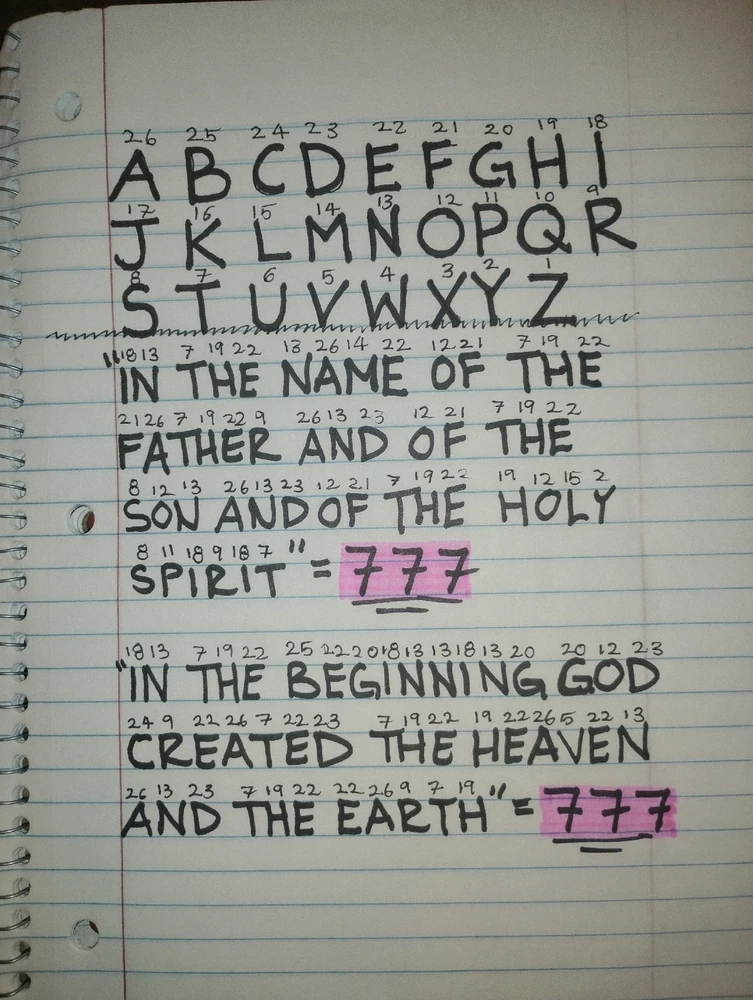 26 25 24 23 22 21 20 19 18
A B C D E F G H I
17 16 15 14 13 12 11 10 9
J K L M N O P Q R
8 7 6 5 4 3 2 1
S T U V W X Y Z
18 13 7 19 22 13 26 14 22 12 21 7 19 22
"IN THE NAME OF THE
21 26 7 19 22 9 26 13 23 12 21 7 19 22
FATHER AND OF THE
8 12 13 26 13 23 12 21 7 19 22 19 12 15 2
SON AND OF THE HOLY
8 11 18 9 18 7
SPIRIT" = 777
18 13 7 19 22 25 22 20 18 13 13 18 13 20 20 12 23
"IN THE BEGINNING GOD
24 9 22 26 7 22 23 7 19 22 19 22 26 5 22 13
CREATED THE HEAVEN
26 13 23 7 19 22 22 26 9 7 19
AND THE EARTH" = 777